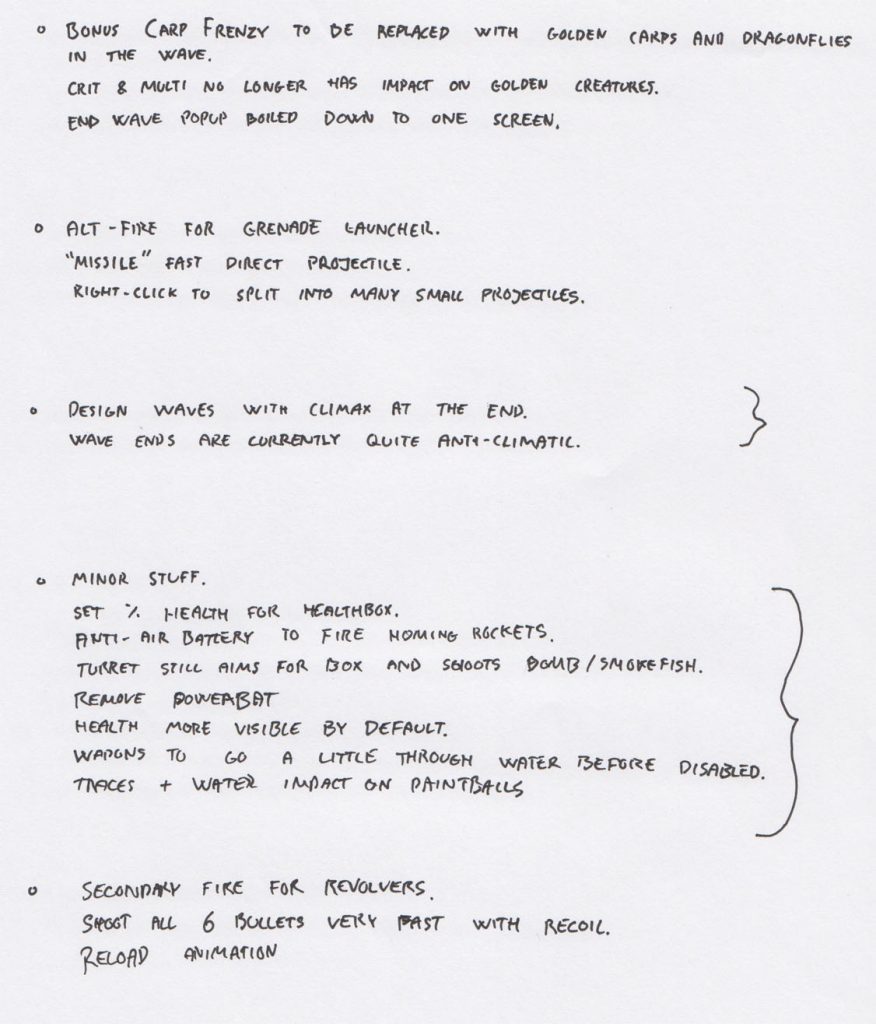 BONUS CARP FRENZY TO BE REPLACED WITH GOLDEN CARPS AND DRAGONFLIES
IN THE WAVE.
CRIT & MULTI NO LONGER HAS IMPACT ON GOLDEN CREATURES.
END WAVE POPUP BOILED DOWN TO ONE SCREEN.
ALT-FIRE FOR GRENADE LAUNCHER.
"MISSILE" FAST DIRECT PROJECTILE.
RIGHT-CLICK TO SPLIT INTO MANY SMALL PROJECTILES.
DESIGN WAVES WITH CLIMAX AT THE END.
WAVE ENDS ARE CURRENTLY QUITE ANTI-CLIMATIC.
MINOR STUFF.
SET % HEALTH FOR HEALTHBOX.
ANTI-AIR BATTERY TO FIRE HOMING ROCKETS.
TURRET STILL AIMS FOR BOX AND SHOOTS BOMB/SMOKEFISH.
REMOVE POWERBAT
HEALTH MORE VISIBLE BY DEFAULT.
WAPONS TO GO A LITTLE THROUGH WATER BEFORE DISABLED.
TRACES + WATER IMPACT ON PAINTBALLS
SECONDARY FIRE FOR REVOLVERS.
SHOOT ALL 6 BULLETS VERY FAST WITH RECOIL.
RELOAD ANIMATION